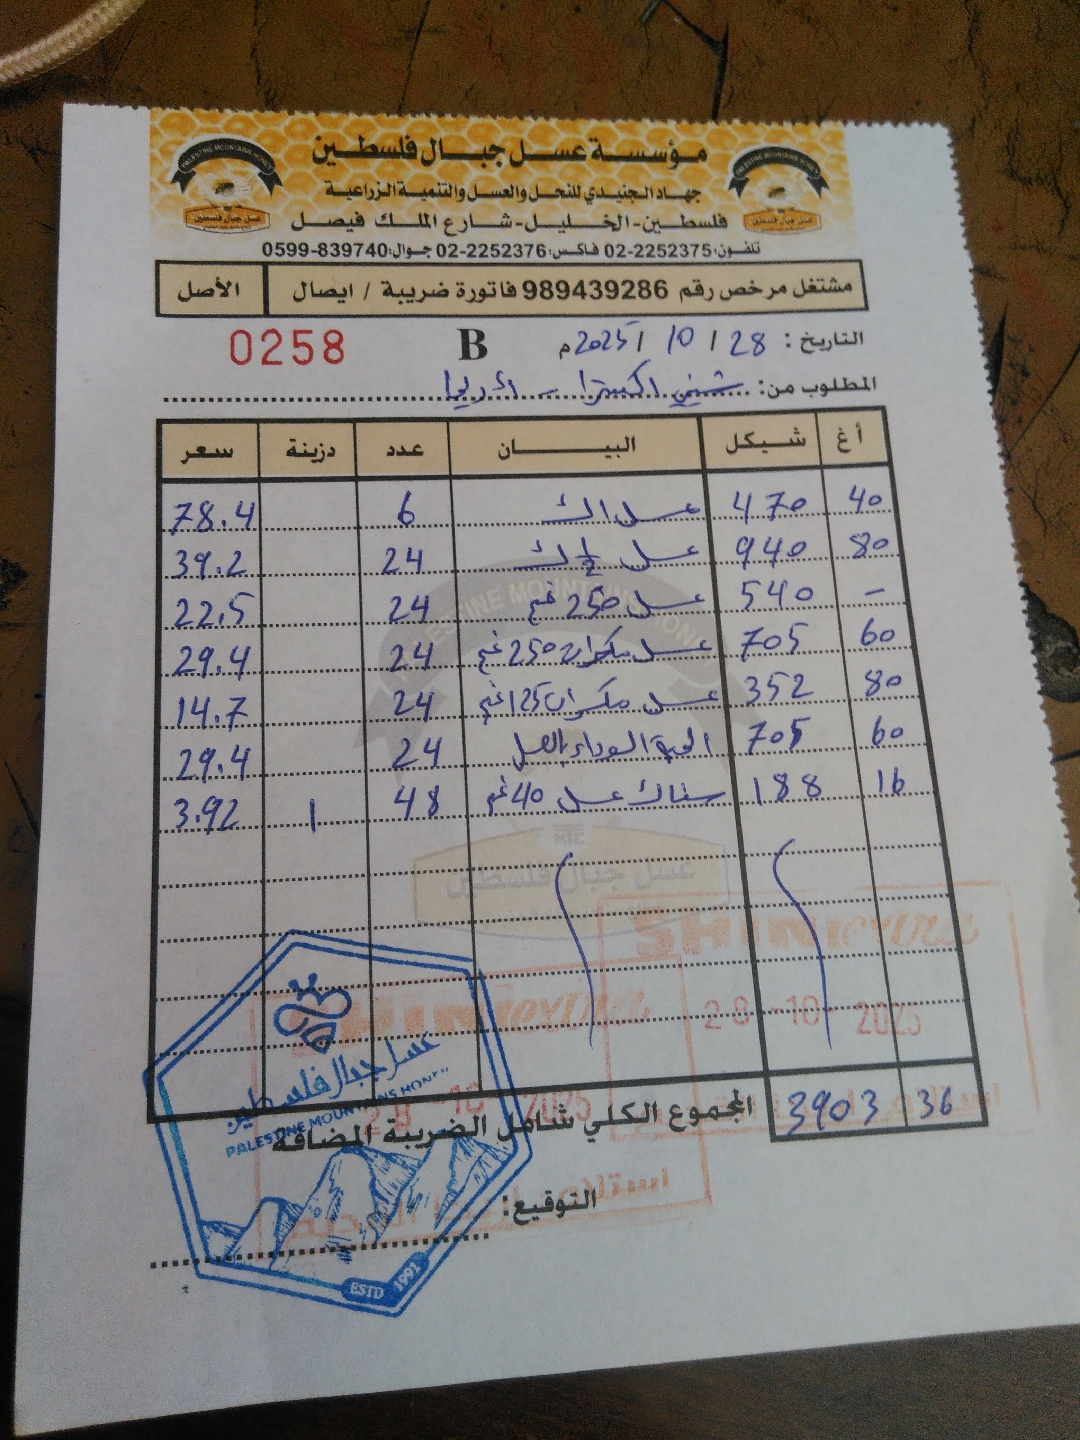 مؤسسة عسل جبال فلسطين
جهاد الجنيدي للنحل والعسل والتنمية الزراعية
فلسطين-الخليل-شارع الملك فيصل
تلفون:02-2252375 فاكس:02-2252376 جوال:0599-839740
PALESTINE MOUNTAINS HONEY
عسل جبال فلسطين
PALESTINE MOUNTAINS HONEY
عسل جبال فلسطين
مشتغل مرخص رقم 989439286 فاتورة ضريبة / ايصال الأصل
التاريخ: 28 / 10 / 2025م B 0258
المطلوب من: شيني اكسترا - أريحا
أغ شيكل البيــــان عدد دزينة سعر
40 470 عسل 1ك 6 78.4
80 940 عسل 1/2 ك 24 39.2
- 540 عسل 250 غم 24 22.5
60 705 عسل مكسرات 250 غم 24 29.4
80 352 عسل مكسرات 125 غم 24 14.7
60 705 الحبة السوداء بالعسل 24 29.4
16 188 سناك عسل 40 غم 48 1 3.92
PALESTINE MOUNTAINS HONEY
عسل جبال فلسطين
SHINI extra
28 -10- 2025
SHINI extra
28 -10- 2025
36 3903 المجموع الكلي شامل الضريبة المضافة
التوقيع:
عسل جبال فلسطين
PALESTINE MOUNTAINS HONEY
ESTD 1991